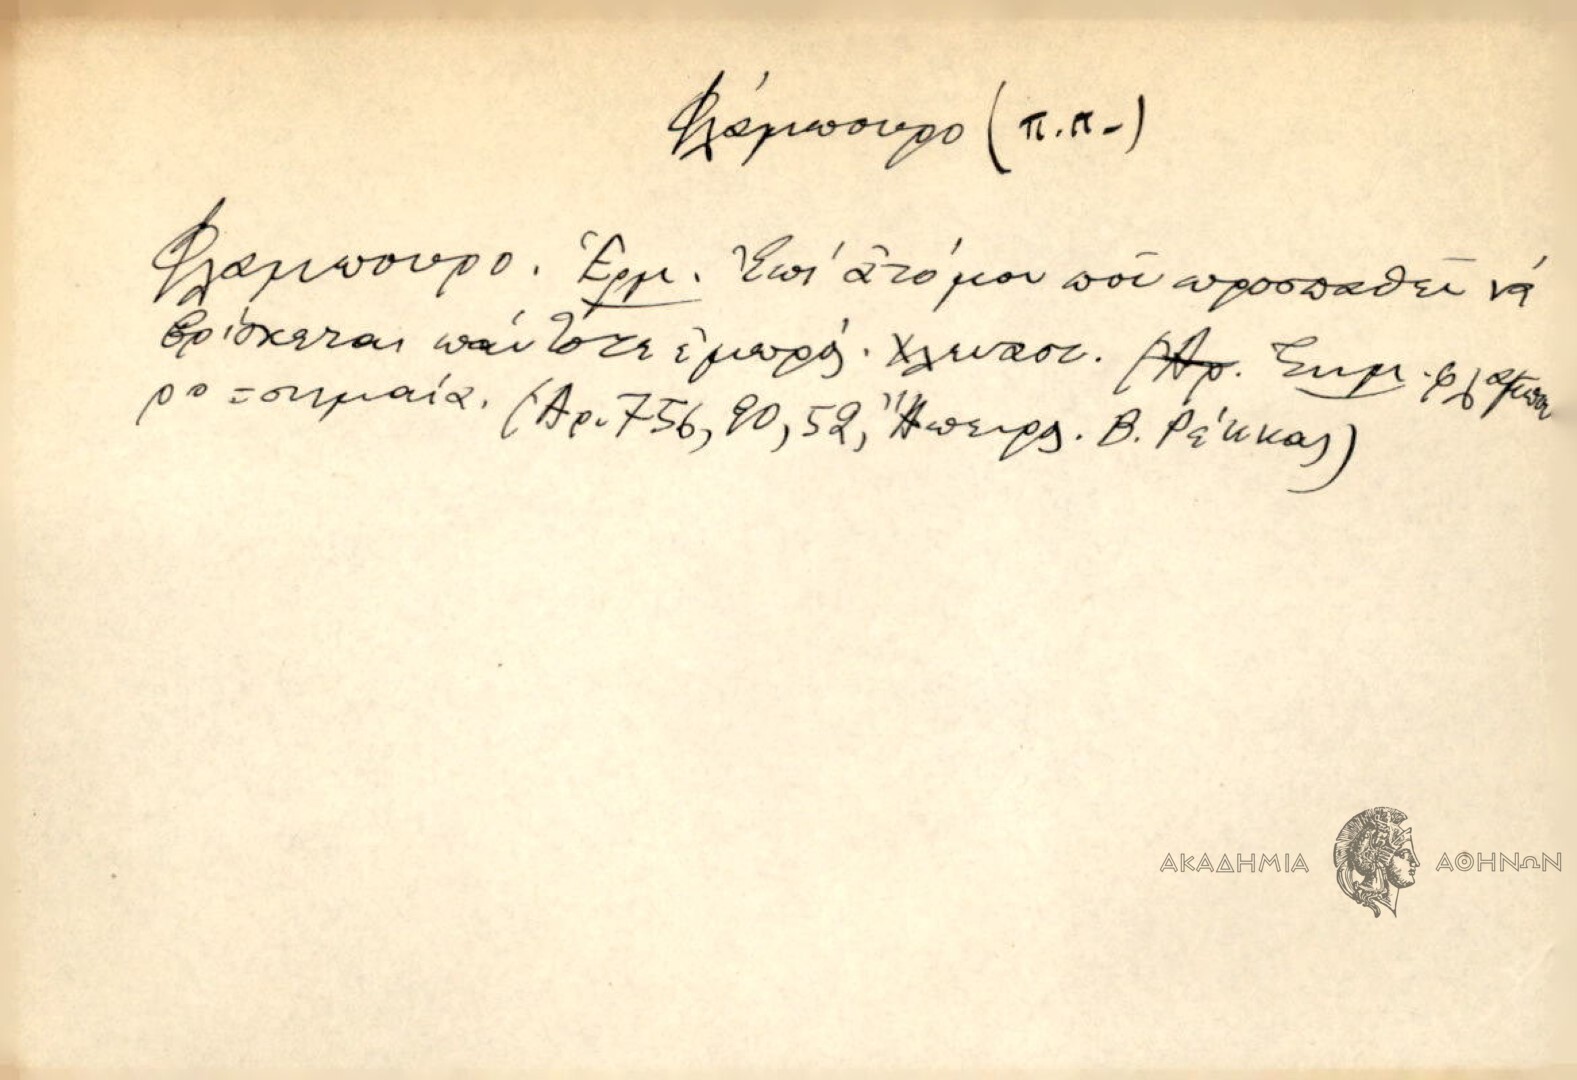 Φλάμπουρο (π.π-)
Φλαμπουρο. Ἑρμ. Ἐπί ἀτόμου ποῦ προσπαθεῖ νά
βρίσκεται πάντοτε ἐμπρός. Χλευαστ. (Ἀρ. Σημ. φλάμπου
ρο = σημαία. (Ἀρ. 756, 90, 52, Ἤπειρος. Β. Ρέκκας)
ΑΚΑΔΗΜΙΑ ΑΘΗΝΩΝ